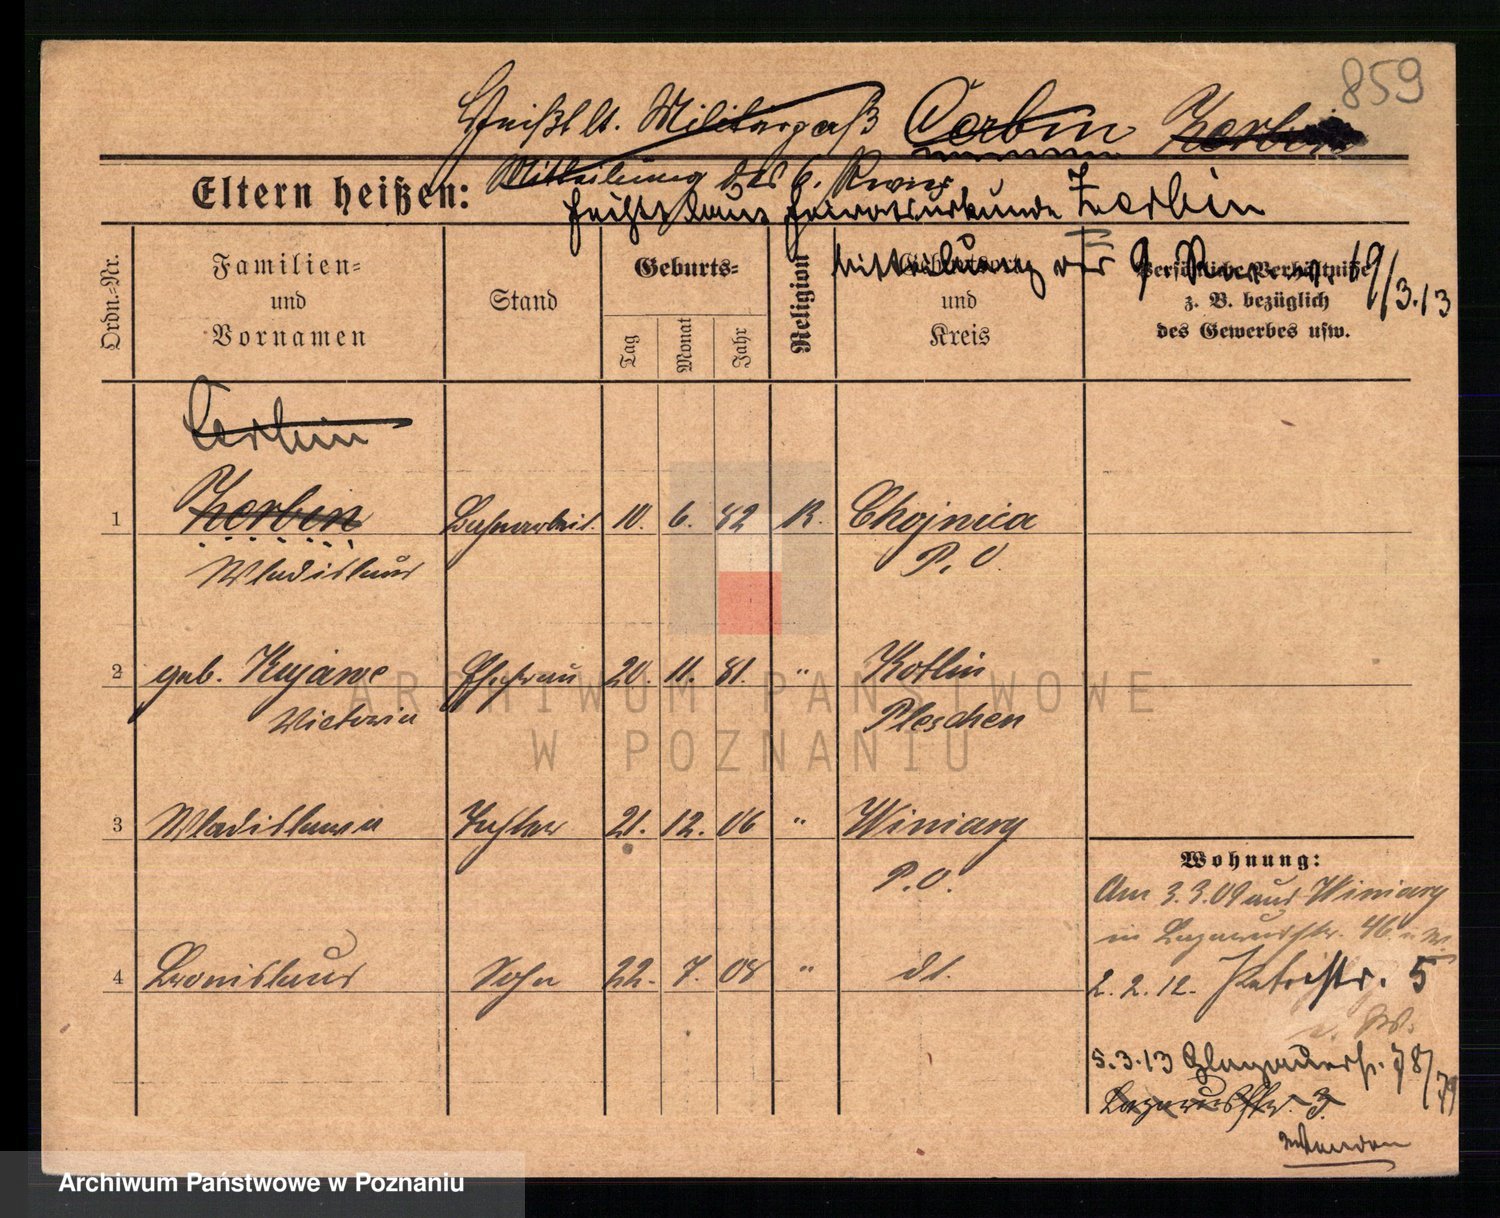 859
heißt lt. Militärpaß Corbin Zerbin
Mitteilung des 6. Reviers
Eltern heißen:
heißt laut Heiratsurkunde Zerbin
Mitteilung 19/3.13
Ordn.-Nr.
Familien-
und
Vornamen
Stand
Geburts-
Tag
Monat
Jahr
Religion
Geburtsort
und
Kreis
Persönliche Verhältnisse
z. B. bezüglich
des Gewerbes usw.
Corbin
1 Zerbin Bahnarbeit. 10. 6. 82 R. Chojnica
Wladislaus P. O.
2 geb. Kujawe Ehefrau 20. 11. 81. " Kotlin
Victoria Pleschen
3 Wladislawa Tochter 21. 12. 06 " Winiary
P. O.
4 Bronislaus Sohn 22. 7. 08 " dt.
Wohnung:
Am 3.3.09 aus Winiary
in Lazarusstr. 46
2. 2. 12. Patristr. 5
5.3.13 Glogauerstr. 78/79
Lazarusstr. 3.
Wenden
ARCHIWUM PAŃSTWOWE
W POZNANIU
Archiwum Państwowe w Poznaniu